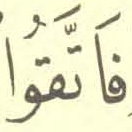 فَاتَّقُوا